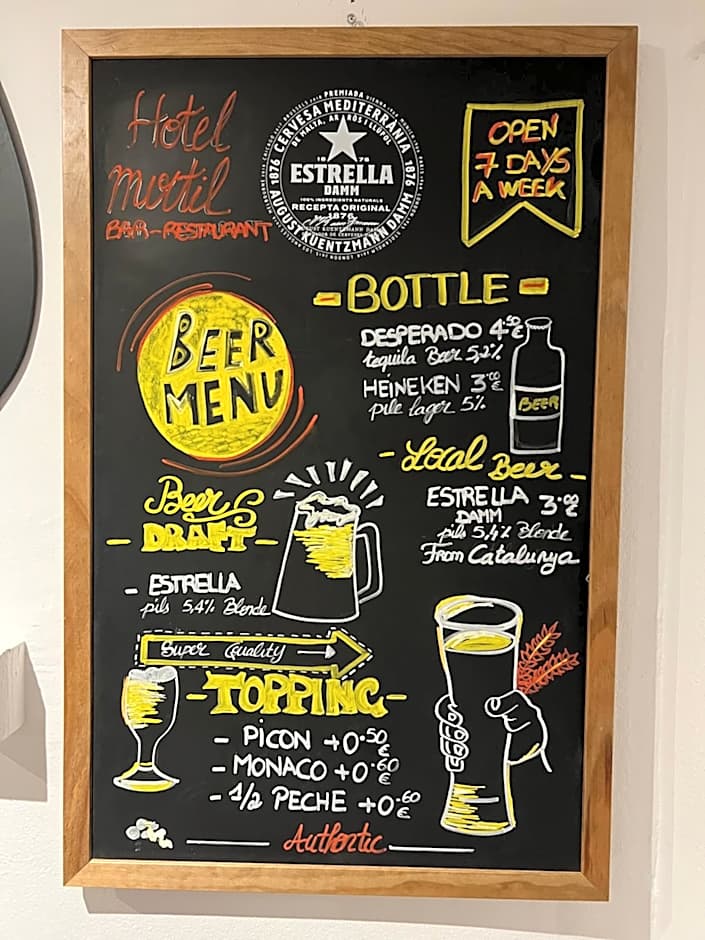 Hotel
mirtil
BAR-RESTAURANT
PREMIADA
1876 CERVESA MEDITERRÀNIA 1876
DE MALTA, ARRÒS I LLÚPOL
1876
ESTRELLA
DAMM
100% INGREDIENTS NATURALS
RECEPTA ORIGINAL
1876
AUGUST KUENTZMANN DAMM
OPEN
7 DAYS
A WEEK
BEER
MENU
-BOTTLE-
DESPERADO 4.50€
tequila Beer 5,2%
HEINEKEN 3.00€
pile lager 5%
BEER
- Local Beer -
ESTRELLA 3.00€
DAMM
pils 5,4% Blonde
From Catalunya
Beer
- DRAFT -
- ESTRELLA
pils 5,4% Blonde
Super Quality
-TOPPING-
- PICON +0.50€
- MONACO +0.60€
- 1/2 PECHE +0.60€
Authentic